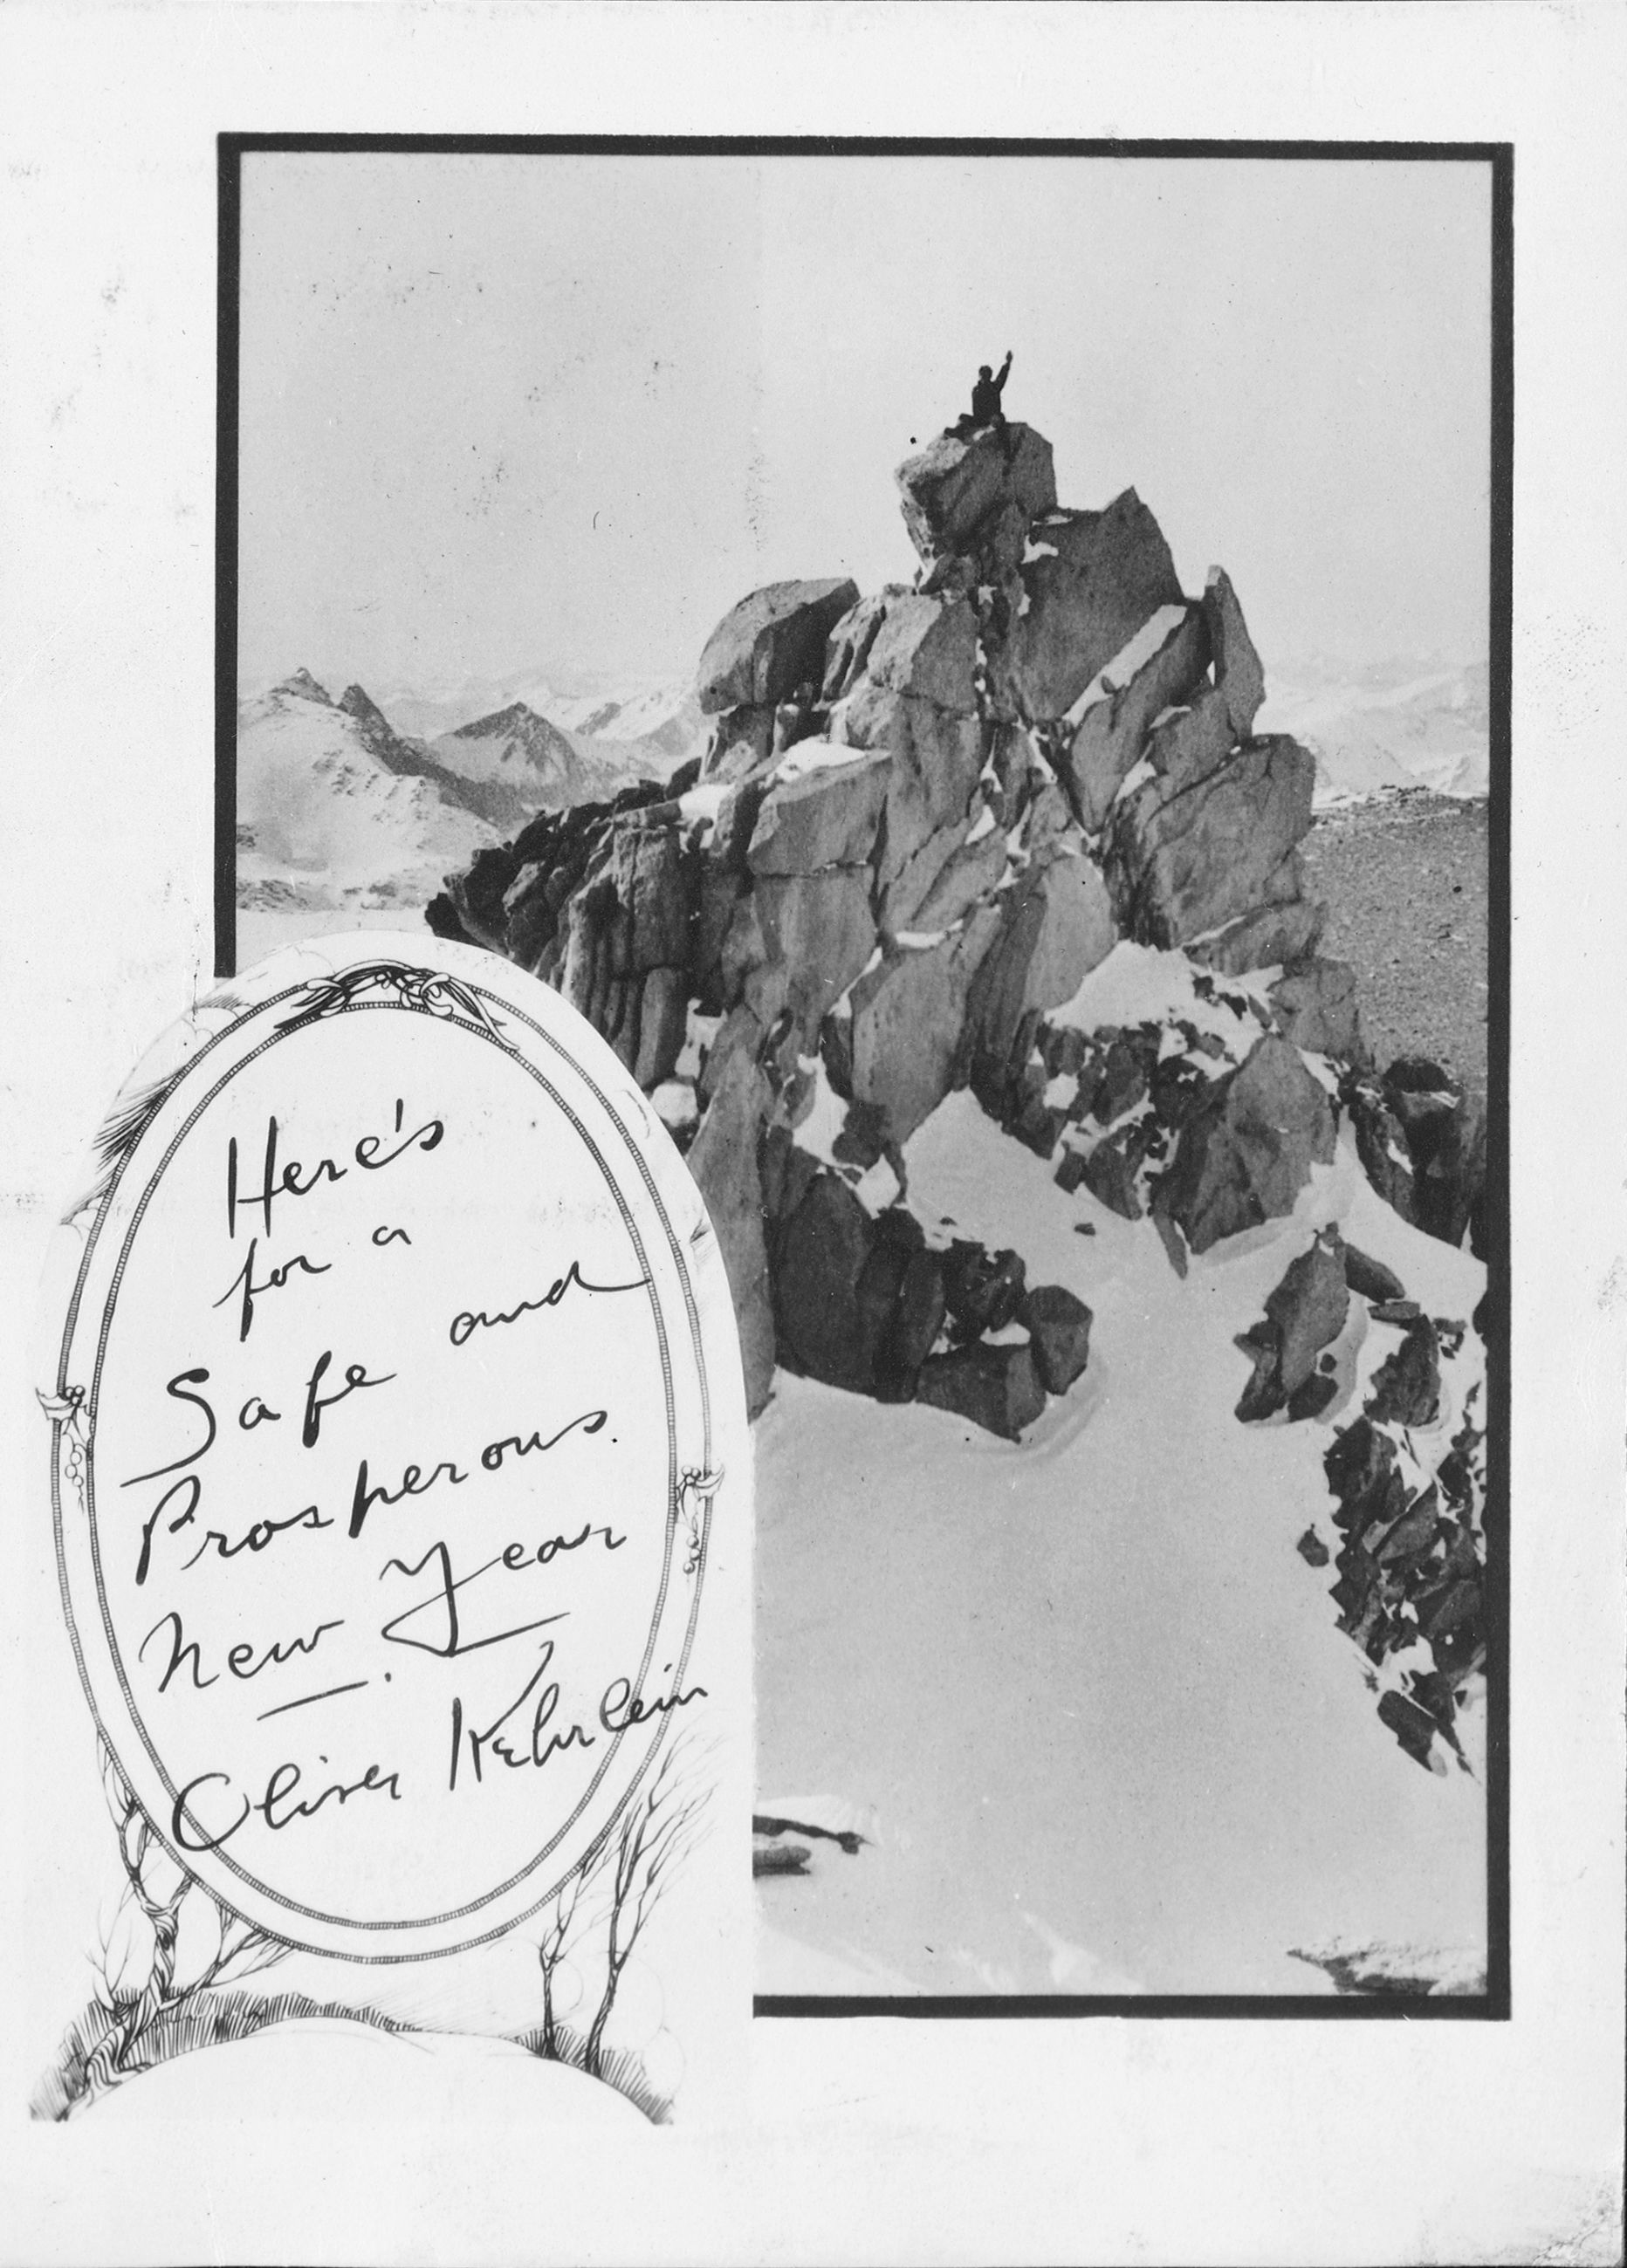 Here's
for a
Safe and
Prosperous
New Year
Oliver Kehrlein